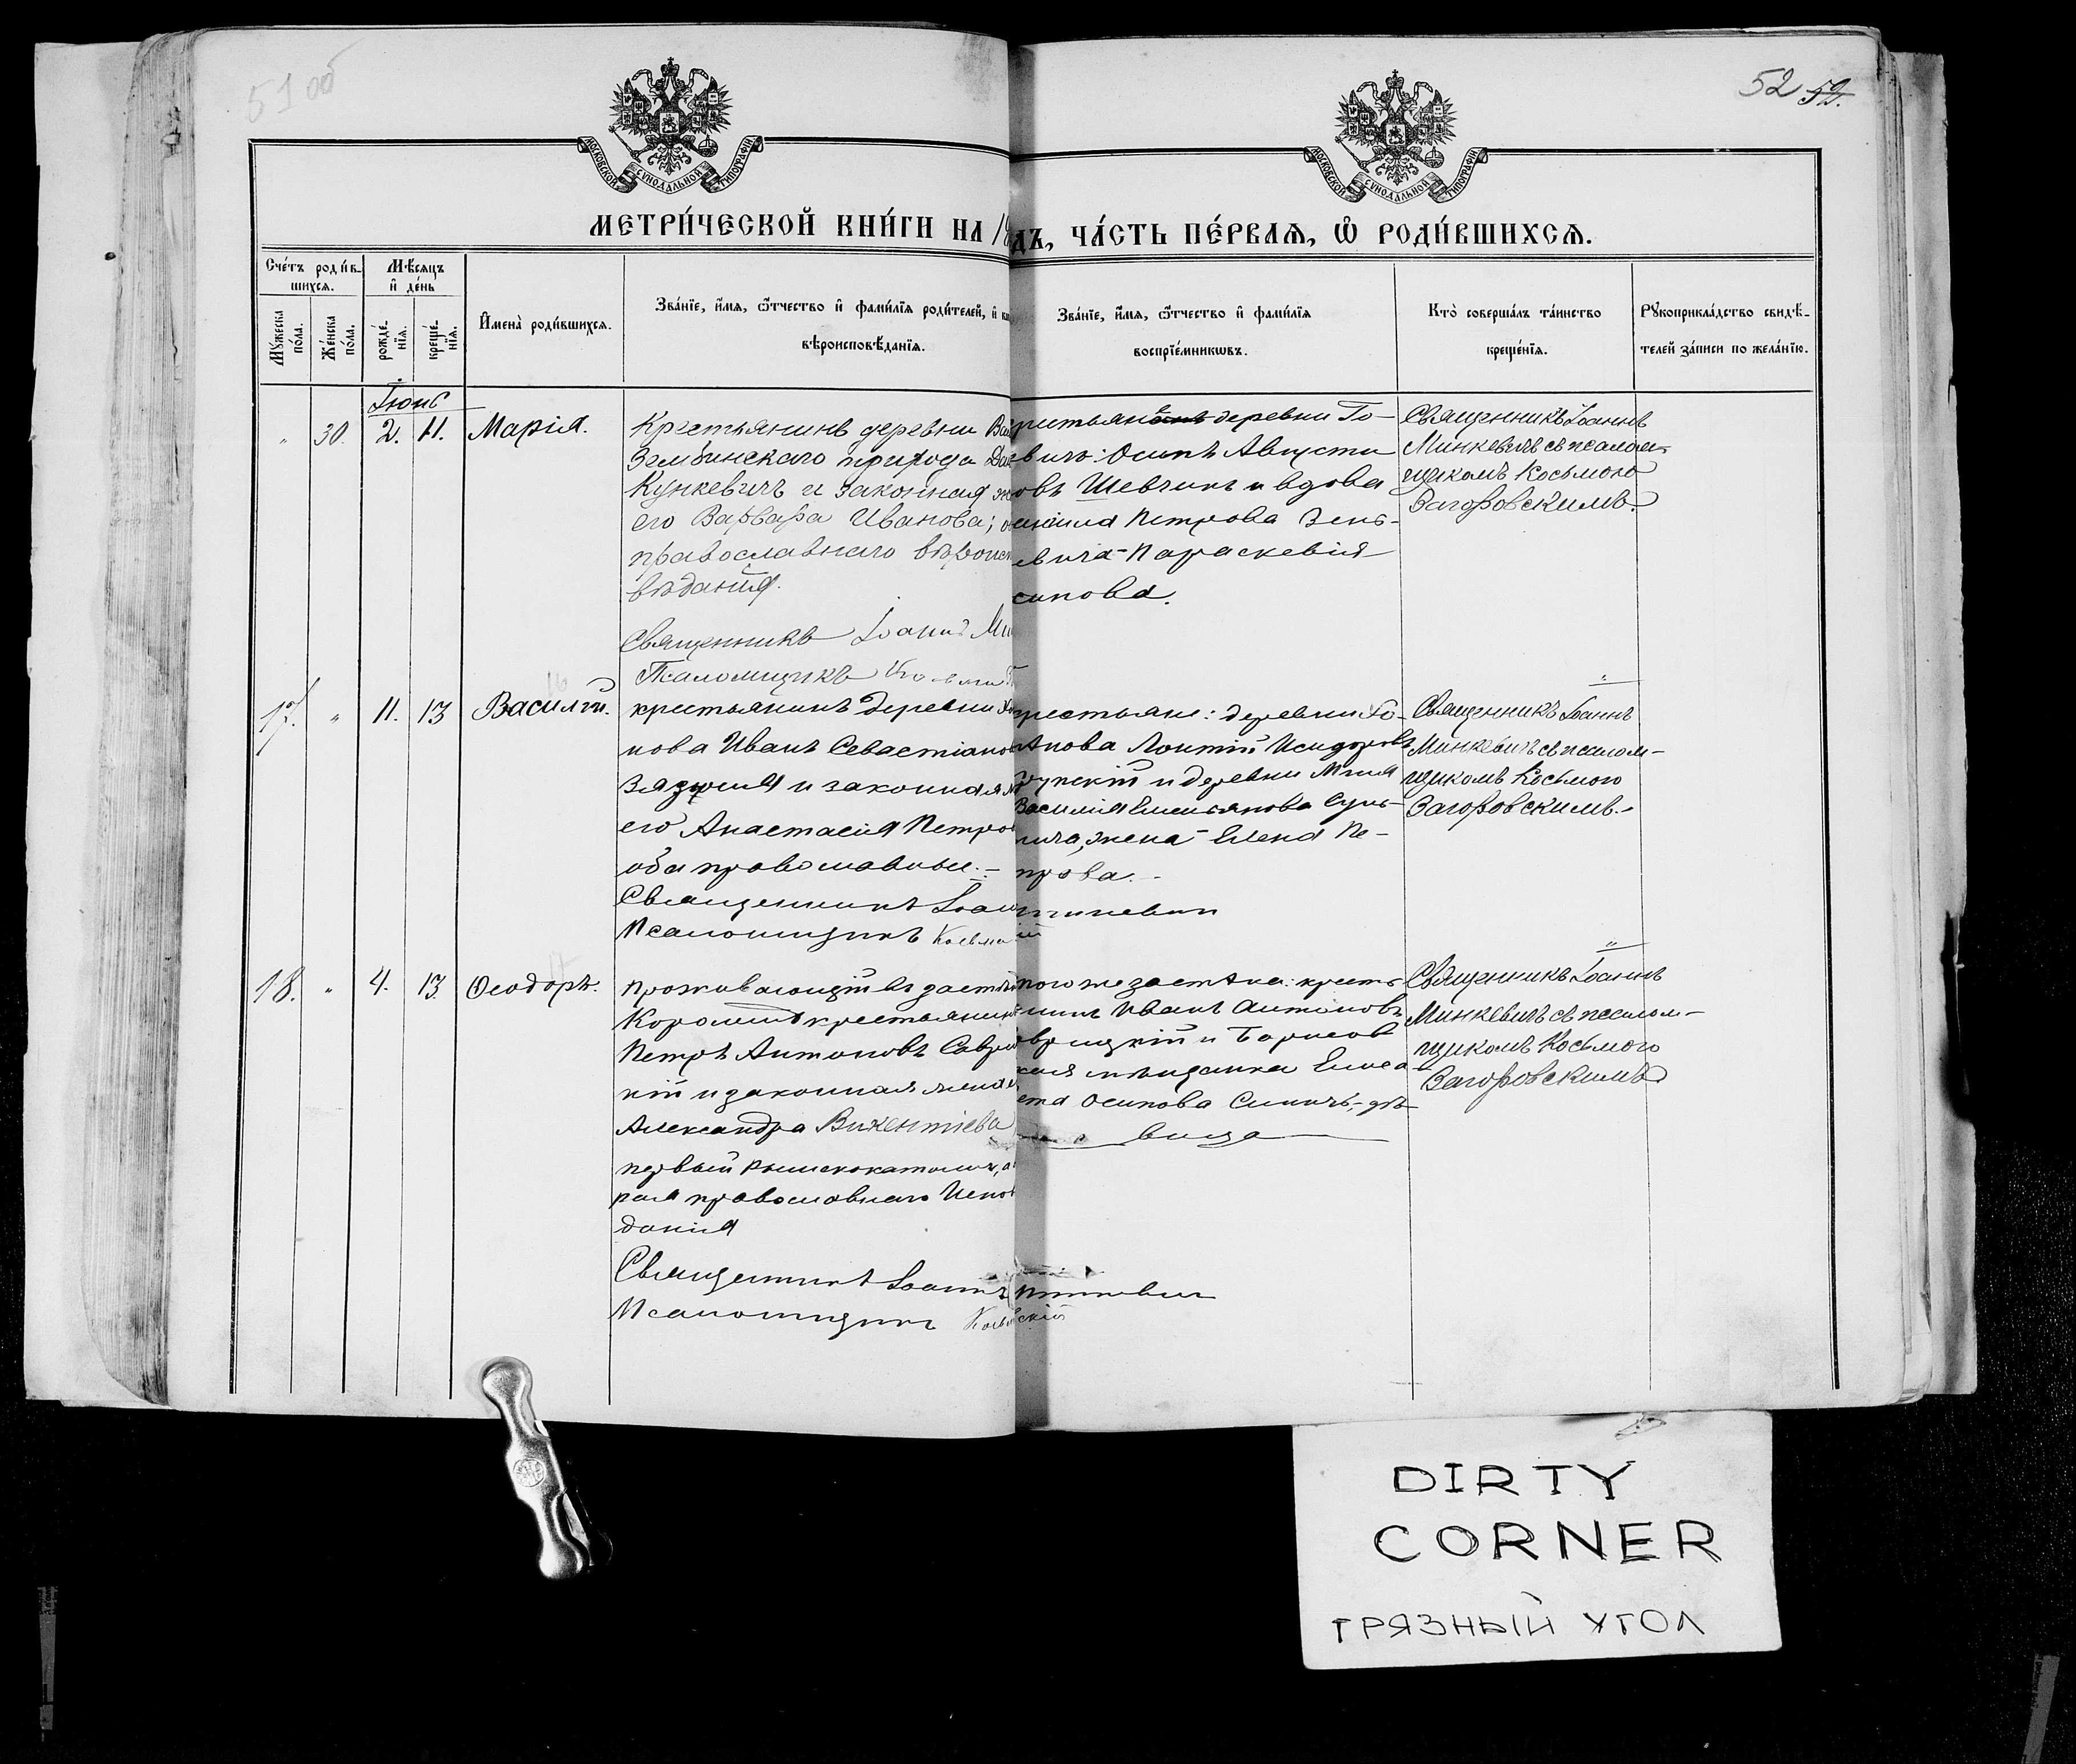 51 об
52 52.
МОСКОВСКОЙ СѴНОДАЛЬНОЙ ТИПОГРАФІИ
МОСКОВСКОЙ СѴНОДАЛЬНОЙ ТИПОГРАФІИ
МЕТРИ́ЧЕСКОЙ КНИ́ГИ НА 18
ДЪ, ЧА́СТЬ ПЕ́РВАЯ, Ѡ҆ РОДИ́ВШИХСЯ.
Сче́тъ роди́в-
шихся.
Мѣ́сяцъ
и҆ де́нь
Мꙋ́жеска
по́ла.
Же́нска
по́ла.
рожде́-
нїя.
креще́-
нїя.
И҆мена̀ роди́вшихся.
Зва́нїе, и҆́мя, ѻ҆́тчество и҆ фами́лїя роди́телей, и҆
вѣроисповѣ́данїя.
Зва́нїе, и҆́мя, ѻ҆́тчество и҆ фами́лїя
воспрїе́мникѡвъ.
Кто̀ соверша́лъ та́инство
креще́нїя.
Рꙋкоприкла́дство свидѣ́-
телей за́писи по жела́нїю.
Іюнь
" 30. 2. 11. Марія.
Крестьянинъ деревни
Зембинскаго прихода
Кункевичъ и законная
его Варвара Иванова;
православнаго вѣроис
вѣданія.
Священникъ Іоаннъ Ми
Псаломщикъ
деревни Го-
вичъ: Осипъ Августи
овъ Шевчикъ и вдова
Петрова Зень-
евича Параскевія
сипова.
Священникъ Іоаннъ
Минкевичъ съ псалом-
щикомъ Косьмою
Загоровскимъ.
17. " 11. 13 Василій.
крестьянинъ деревни
нова Иванъ Севастіано
и законная
его Анастасія Петро
оба православные.-
Священникъ Іоан
Псаломщикъ Косьма
рестьяне: деревни
Исидоровъ
и деревни
Василія Емельянова
жена Елена Пе-
трова.-
инкевич
ій
"
Священникъ Іоаннъ
Минкевичъ съ псалом-
щикомъ Косьмою
Загоровскимъ.-
18. " 4. 13. Ѳеодоръ.
Проживающій въ застѣн
крестьянинъ
Петръ Антоновъ Саври
кій и законная жена
Александра Викентіева
первый Римскокатолич, а
рая православнаго Испов
данія
Священникъ Іоаннъ
Псаломщикъ Косьм
того же застѣнка: кресть
нинъ Иванъ Антоновъ
аврицкій и Борисов
ская мѣщанка Елиса
ета Осипова дѣ-
вица
Минкевич
скій
"
Священникъ Іоаннъ
Минкевичъ съ псалом-
щикомъ Косьмою
Загоровскимъ
DIRTY
CORNER
ГРЯЗНЫЙ УГОЛ